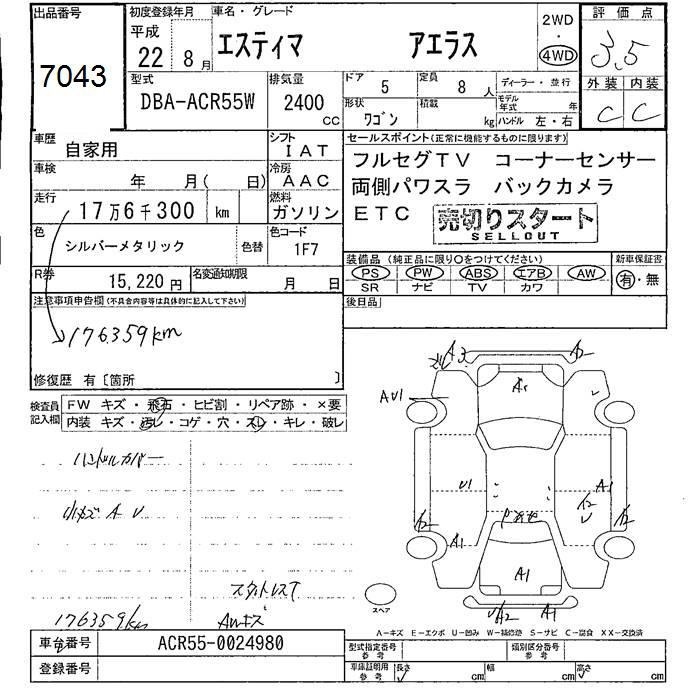 出品番号 初度登録年月 車名・グレード 2WD 評価点
7043 平成 22 8月 エスティマ アエラス 4WD 3.5
型式 排気量 ドア 5 定員 8人 ディーラー・並行 外装 内装
DBA-ACR55W 2400cc 形状 ワゴン 積載 kg モデル年式 年 ハンドル 左・右 C C
車歴 自家用 シフト IAT セールスポイント(正常に機能するものに限ります)
車検 年 月( 日) 冷房 AAC フルセグTV コーナーセンサー
走行 17万6千300 km 燃料 ガソリン 両側パワスラ バックカメラ
ETC 売切りスタート
SELLOUT
色 シルバーメタリック 色替 色コード 1F7
装備品(純正品に限り○をつけてください) 新車保証書
R券 15,220円 名変通知期限 月 日 PS PW ABS エアB AW 有・無
SR ナビ TV カワ
注意事項申告欄(不具合内容等は具体的に記入して下さい) 後日品
176359km
修復歴 有〔箇所 〕
検査員記入欄 FW キズ・飛石・ヒビ割・リペア跡・×要
内装 キズ・汚レ・コゲ・穴・スレ・キレ・破レ
ハンドルカバー
小キズ A U
スタットレスT
176359km AWキズ
A3 A2
A1
AU1
U1 A1
A2 A2
A1
A1
A2 A1
スペア
A-キズ E-エクボ U-凹み W-補修跡 S-サビ C-腐食 XX-交換済
車台番号 ACR55-0024980 型式指定番号 参考 類別区分番号 参考
登録番号 車庫証明用 参考 長さ cm 幅 cm 高さ cm